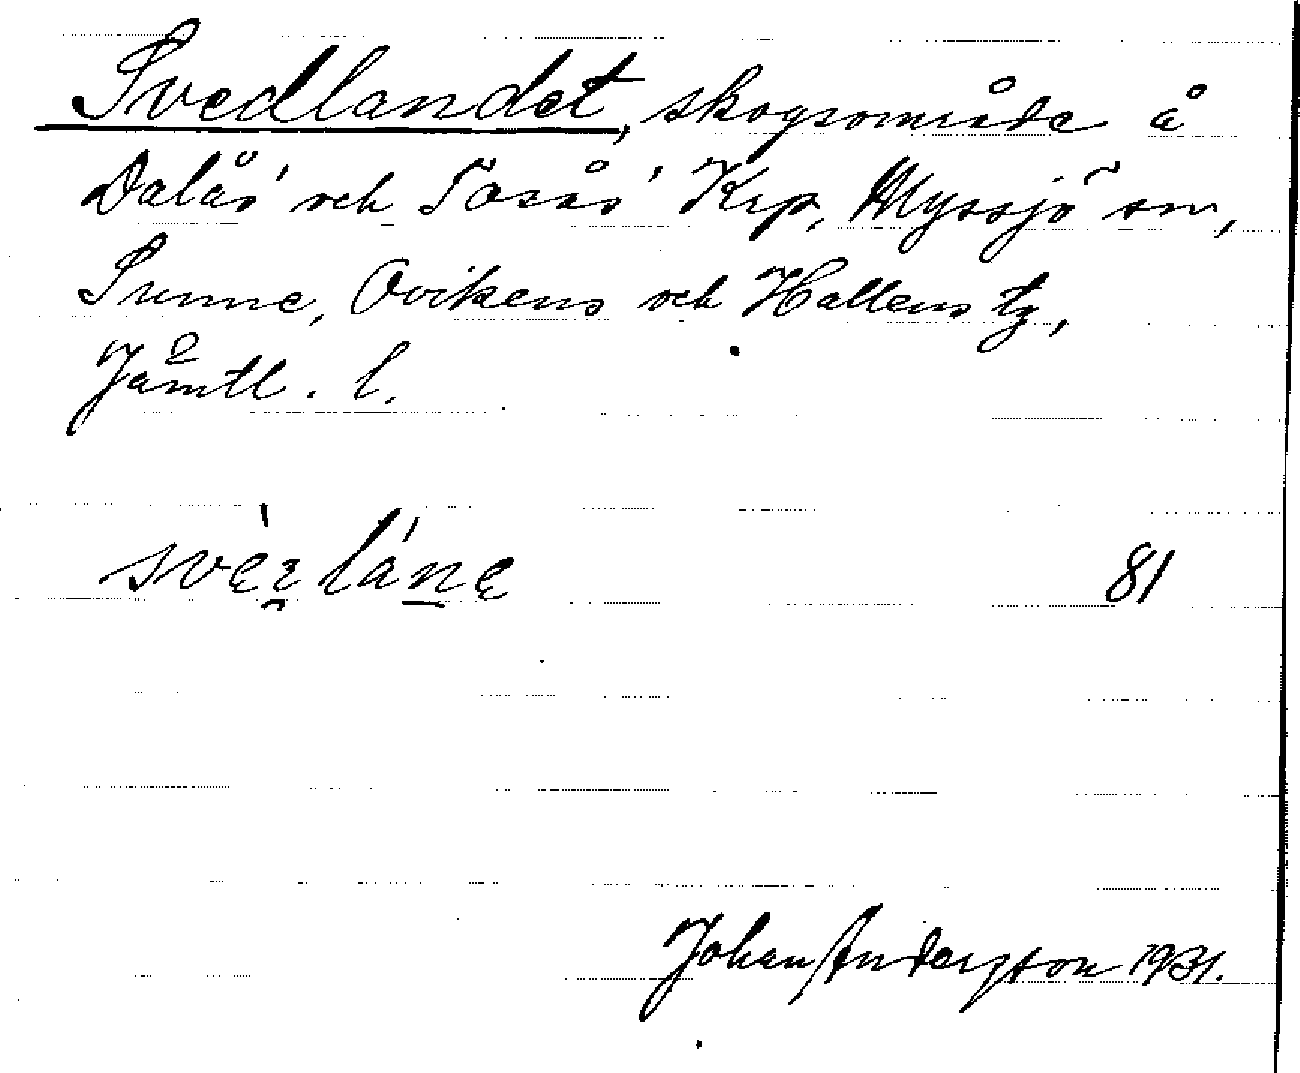 Svedlandet, skogsområde å
Dalås' och Tossås' Krp, Myssjö sn,
Sunne, Ovikens och Hallens tg,
Jämtl. l.
81
Johan Andersson 1931.